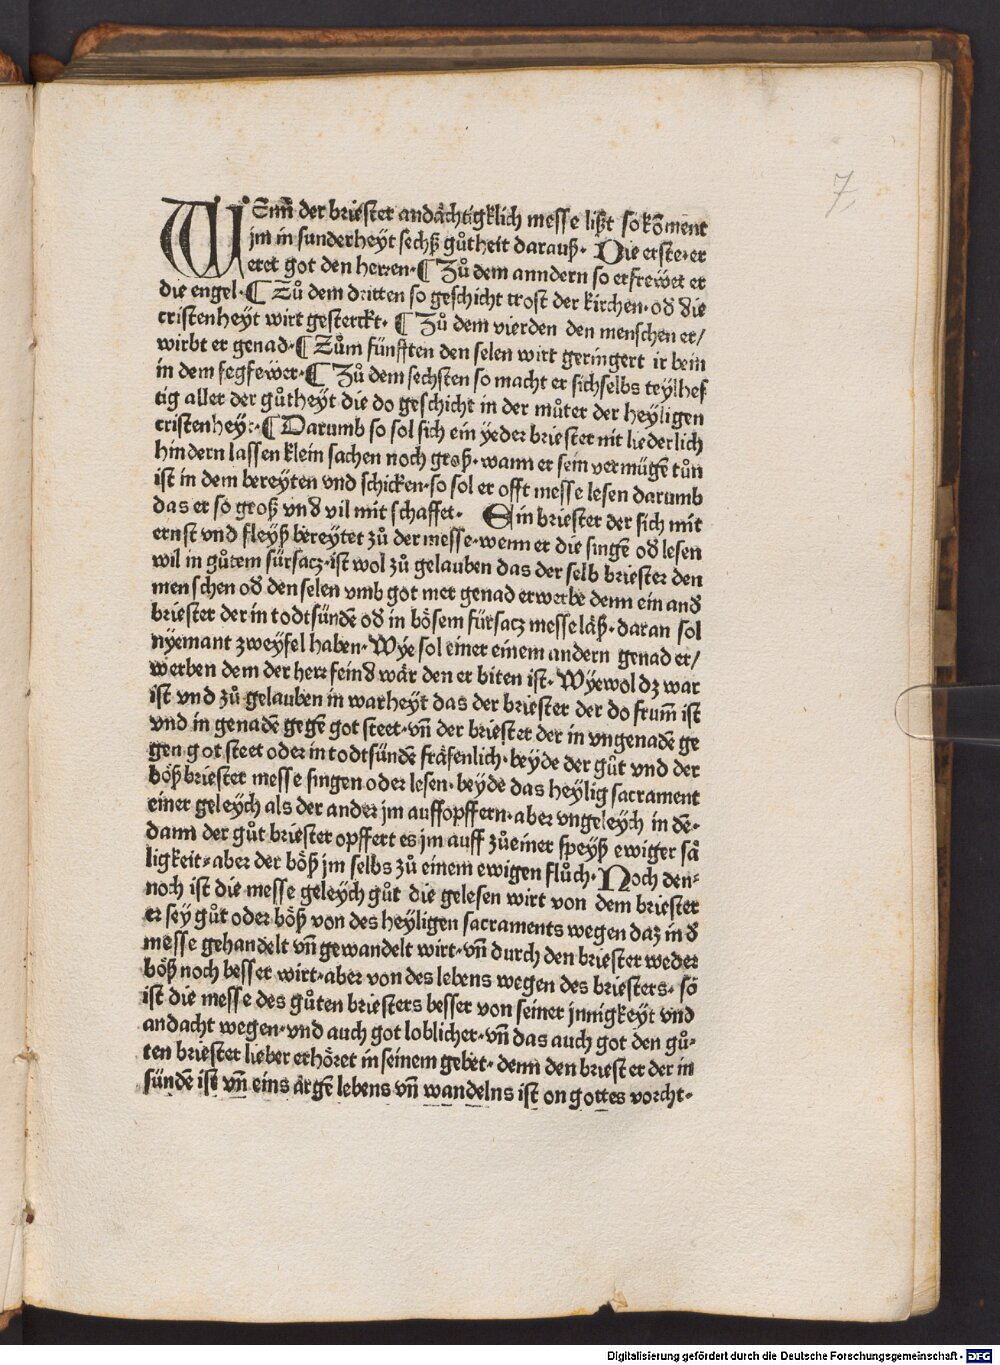 7
WEnn̄ der briester andåchtigklich messe lißt so kōment
jm in sunderheÿt sechß gůtheit darauß. Die erste er
eret got den herren. ¶ Zů dem anndern so erfreẅet er
die engel. ¶ Zů dem dritten so geschicht trost der kirchen. od̄ die
cristenheÿt wirt gesterckt. ¶ Zů dem vierden den menschen er/
wirbt er genad. ¶ Zům fünfften den selen wirt geringert ir bein
in dem fegfeẅer. ¶ Zů dem sechsten so macht er sichselbs teÿlhef
tig aller der gůtheÿt die do geschicht in der můter der heÿligen
cristenheÿt. ¶ Darumb so sol sich ein ÿeder briester nit liederlich
hindern lassen klein sachen noch groß. wann er sein vermügē tůn
ist in dem bereÿten vnd schicken. so sol er offt messe lesen darumb
das er so groß vnd̄ vil mit schaffet. Ein briester der sich mit
ernst vnd fleÿß bereÿtet zů der messe. wenn er die singē od̄ lesen
wil in gůtem fürsacz. ist wol zů gelauben das der selb briester den
menschen od̄ den selen vmb got mer genad erwerbe denn ein and̄
briester der in todtsündē od̄ in bösem fürsacz messe läß. daran sol
nÿemant zweÿfel haben. Wÿe sol einer einem andern genad er/
werben dem der herr feind̄ wår den er biten ist. Wÿewol dz war
ist vnd zů gelauben in warheÿt das der briester der do frum̄ ist
vnd in genadē gegē got steet. vn̄ der briester der in vngenadē ge
gen got steet oder in todtsündē fråfenlich. beÿde der gůt vnd der
böß briester messe singen oder lesen. beÿde das heÿlig sacrament
einer geleÿch als der ander jm auffopffern. aber vngeleÿch in dē.
dann der gůt briester opffert es jm auff zů einer speÿß ewiger så
ligkeit. aber der böß jm selbs zů einem ewigen flůch. Noch den⸗
noch ist die messe geleÿch gůt die gelesen wirt von dem briester
er seÿ gůt oder böß von des heÿligen sacraments wegen daz in d̄
messe gehandelt vn̄ gewandelt wirt. vn̄ durch den briester weder
böß noch besser wirt. aber von des lebens wegen des briesters. so
ist die messe des gůten briesters besser von seiner jnnigkeÿt vnd
andacht wegen. vnd auch got loblicher. vn̄ das auch got den gů⸗
ten briester lieber erhöret in seinem gebet. denn den briester der in
sündē ist vn̄ eins årgē lebens vn̄ wandelns ist on gottes vorcht.
Digitalisierung gefördert durch die Deutsche Forschungsgemeinschaft - DFG